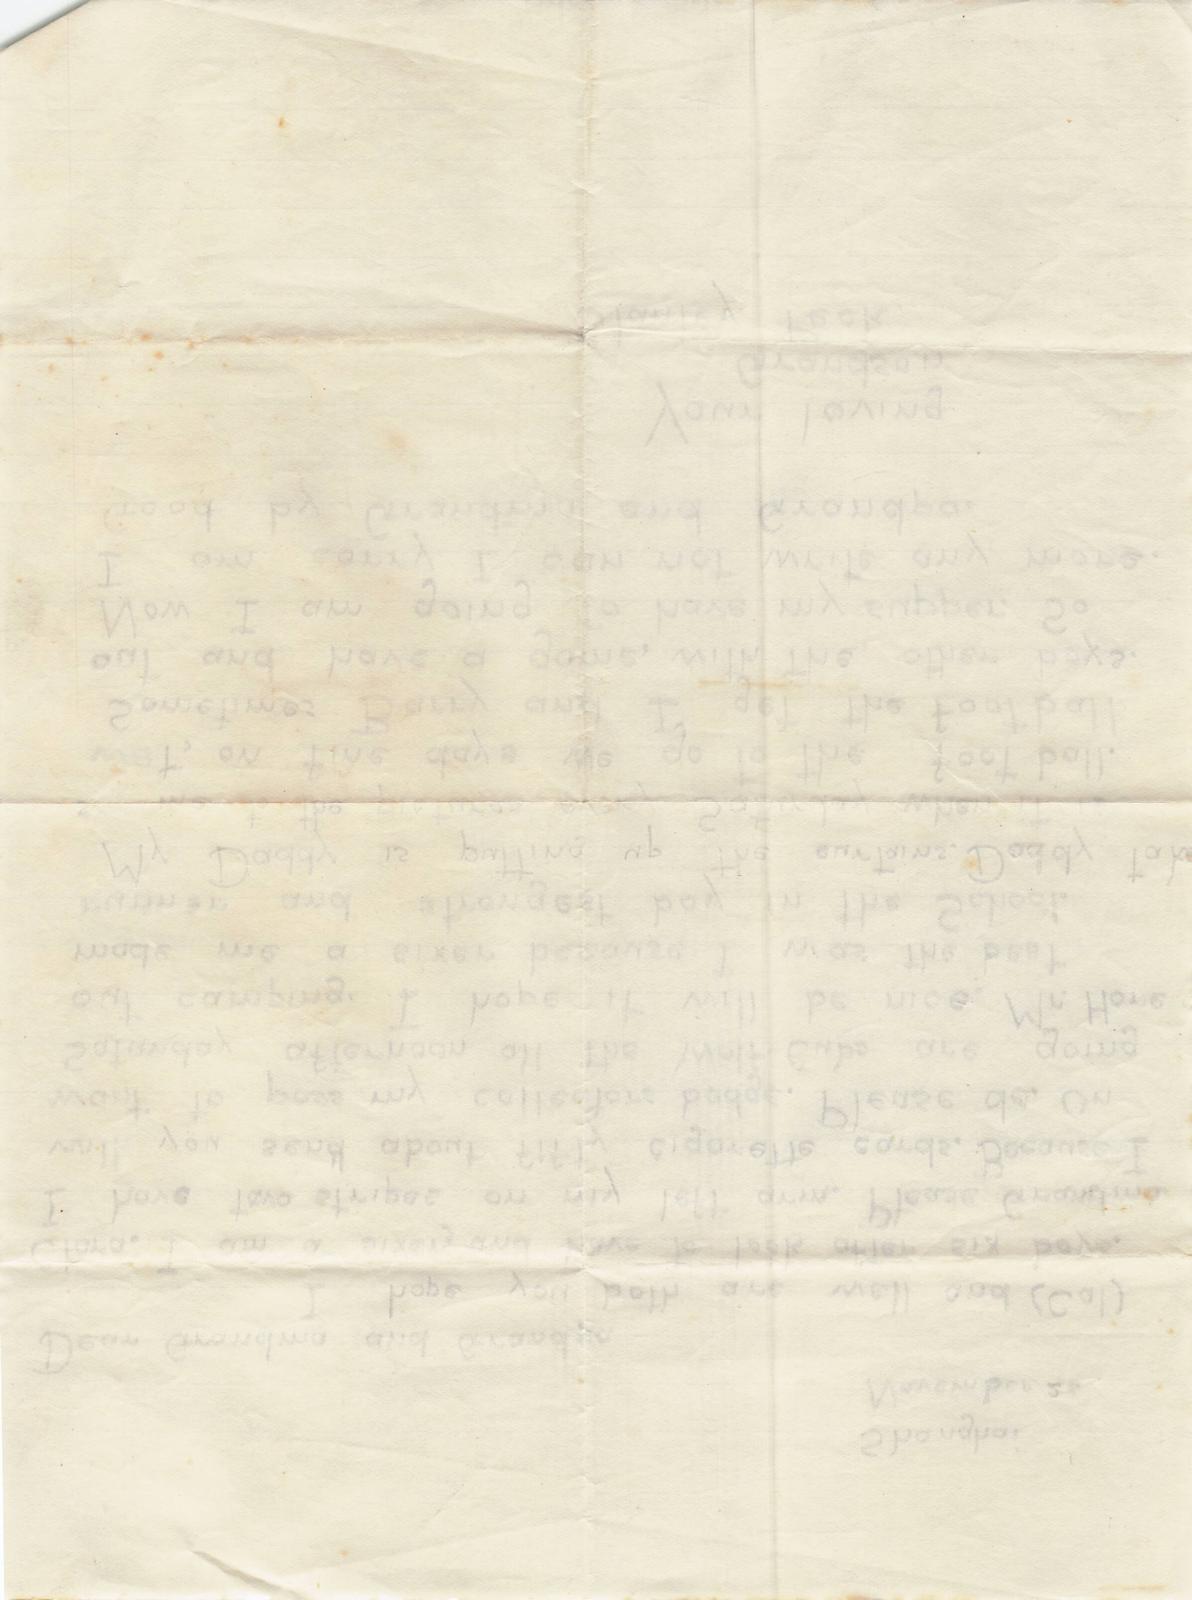 Shanghai
November 22
Dear Grandma and Grandpa
I hope you both are well and (Gal)
Clara. I am a sixer, and have to look after six boys.
I have two stripes on my left arm. Please Grandma
will you send about fifty cigarette cards. Because I
want to pass my collectors badge. Please do. On
Saturday afternoon all the Wolf Cubs are going
out camping. I hope it will be nice. Mr. Hone
made me a sixer because I was the best
runner and strongest boy in the School.
My Daddy is putting up the curtains. Daddy take
s me to the pictures every Saturday when it is
wet, on fine days we go to the foot ball.
Sometimes Barry and I get the football
out and have a game, with the other boys.
Now I am going to have my supper. So
I am sorry I can not write any more.
Good by Grandma and Grandpa.
Your loving
Grandson
Stanley Peck